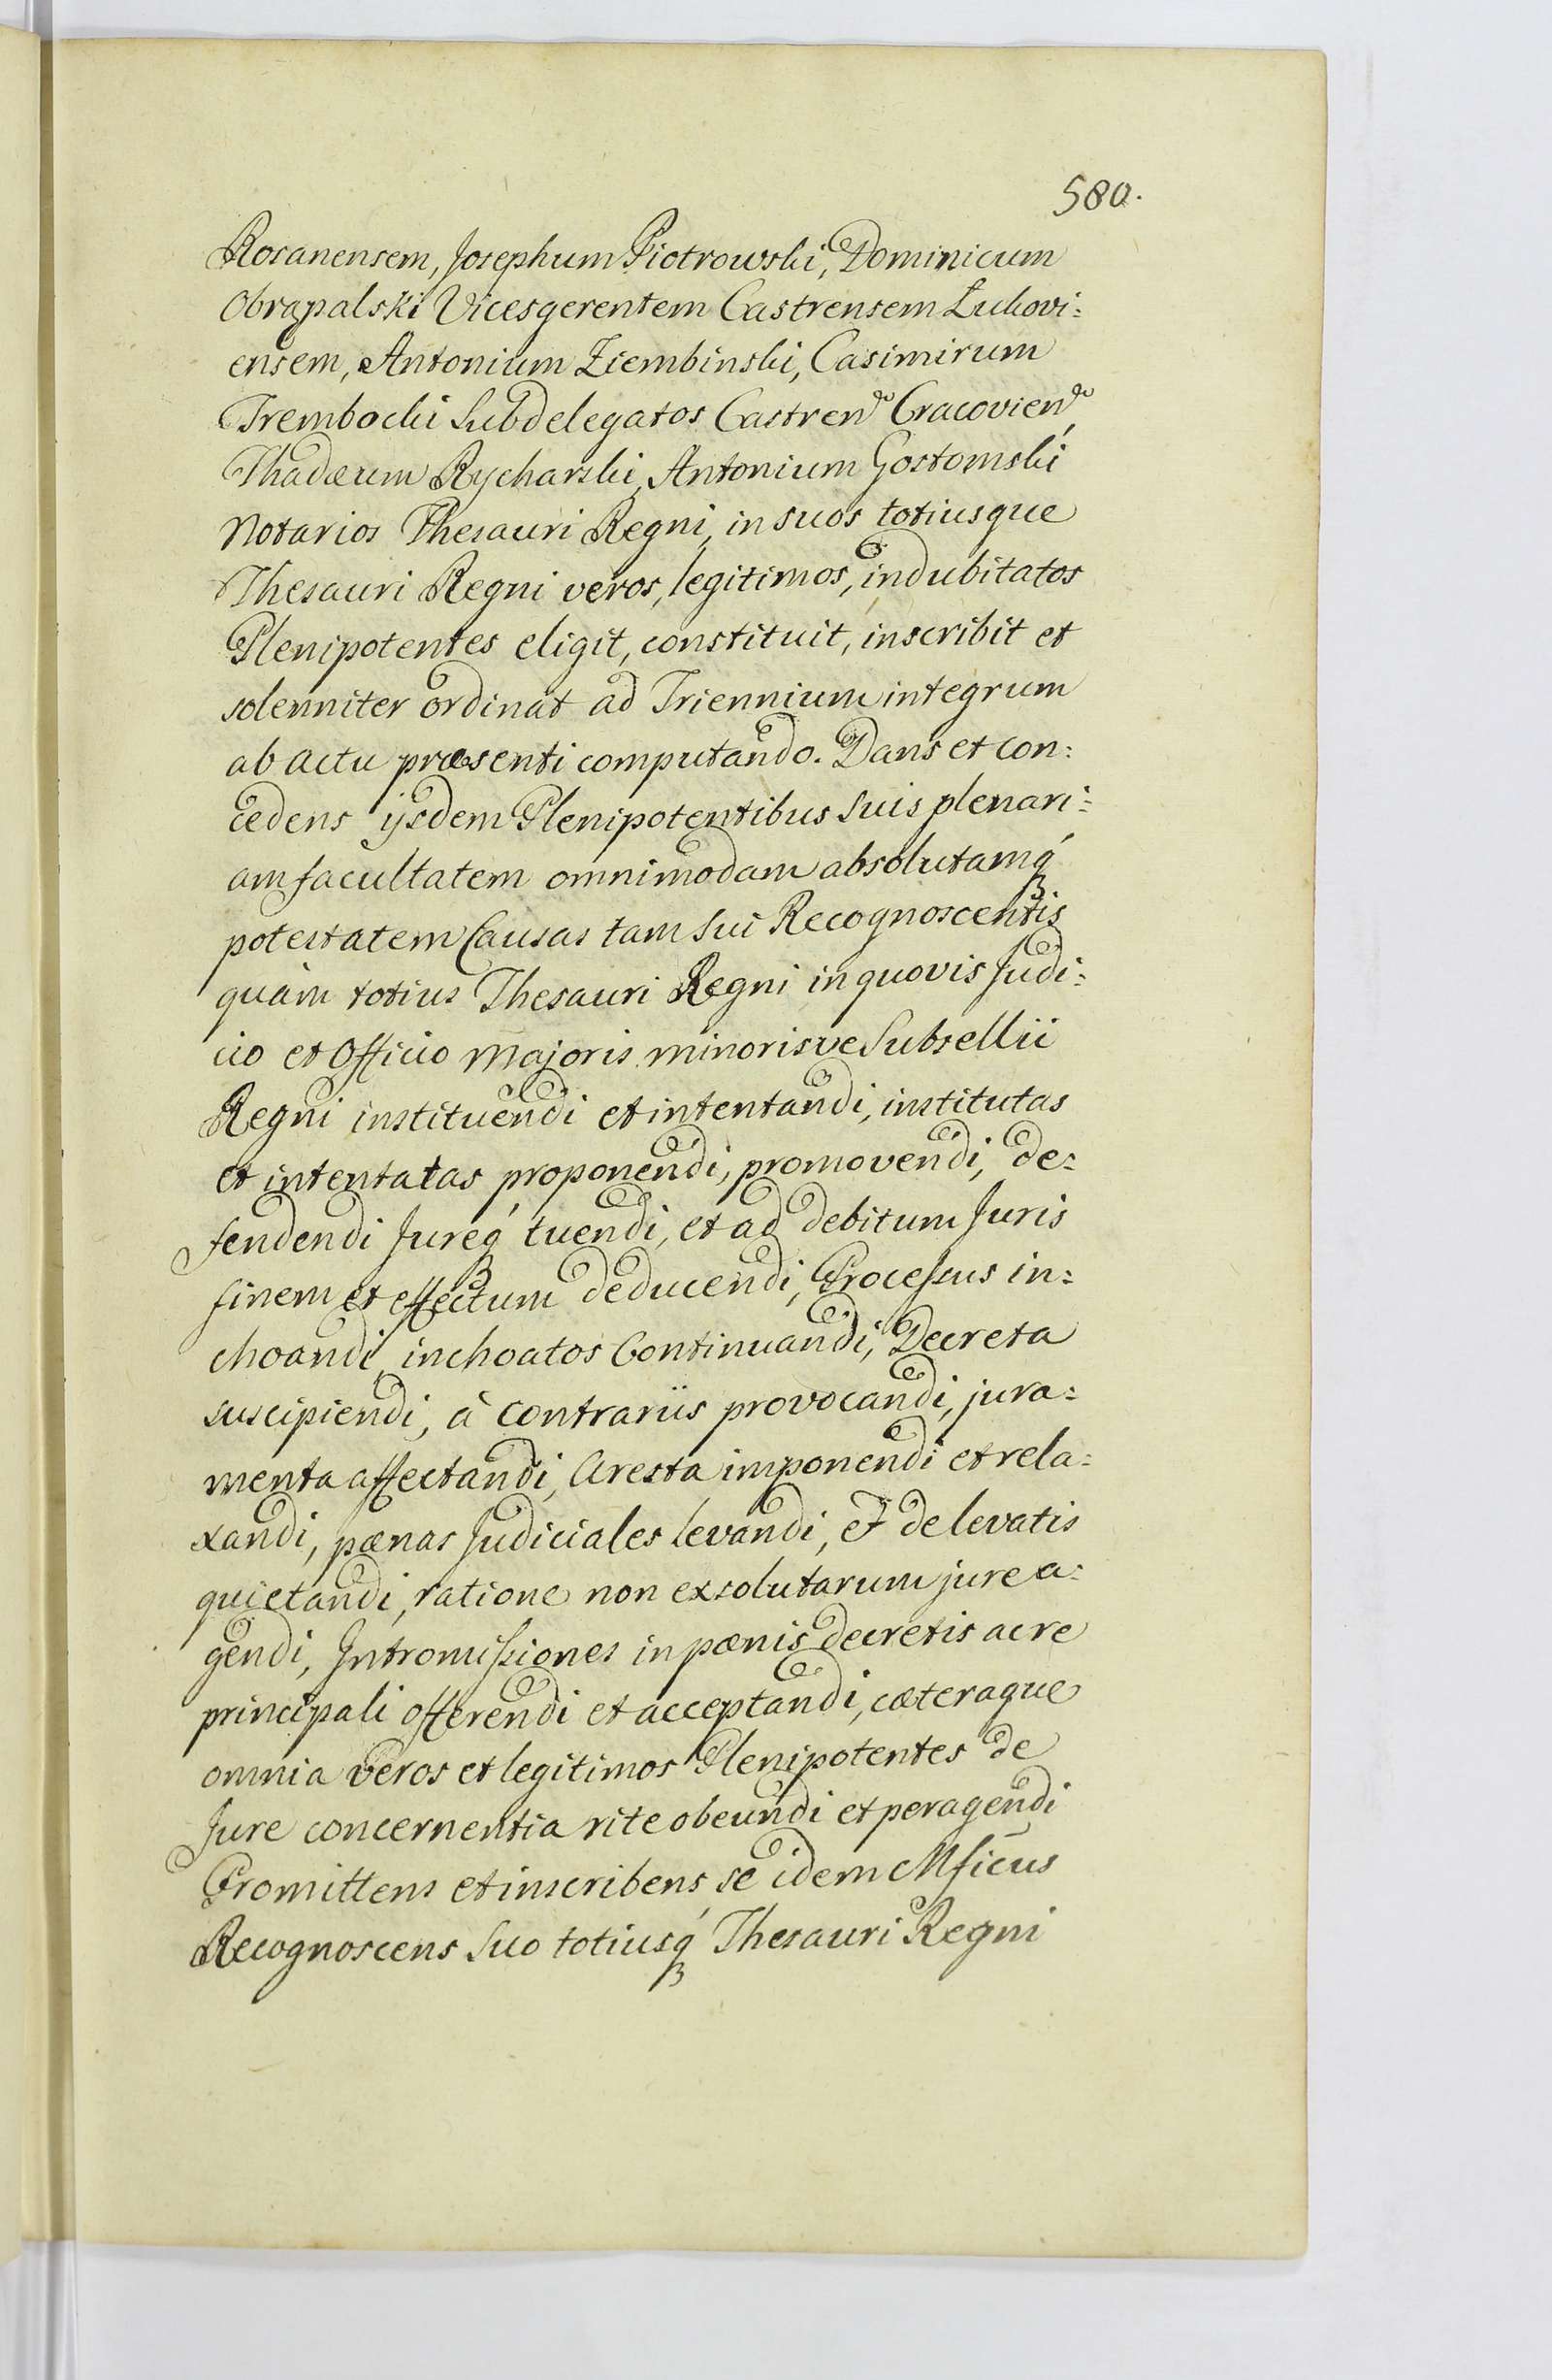 580.
Rosanensem, Josephum Piotrowski, Dominicum
Obrapalski Vicesgerentem Castrensem Lukovi=
ensem, Antonium Ziembinski, Casimirum
Trembocki Subdelegatos Castren Cracovien,
Thadæum Rycharski, Antonium Gostomski
Notarios Thesauri Regni, in suos totiusque
Thesauri Regni veros, legitimos, indubitatos
Plenipotentes eligit, constituit, inscribit et
solenniter ordinat ad Triennium integrum
ab actu præsenti computando. Dans et con=
cedens ijsdem Plenipotentibus Suis plenari=
am facultatem omnimodam absolutamq́
potestatem Causas tam Sui Recognoscentis
quàm totius Thesauri Regni in quovis Judi=
cio et Officio Majoris minorisve Subsellii
Regni instituendi et intentandi, institutas
et intentatas proponendi, promovendi, de=
fendendi Jureq́ tuendi, et ad debitum Juris
finem et effectum deducendi, Processus in=
choandi, inchoatos Continuandi, Decreta
suscipiendi, à Contrariis provocandi, jura=
menta affectandi, Aresta imponendi et rela=
xandi, pænas Judiciales levandi, et de levatis
quietandi, ratione non exsolutarum jure a=
gendi, Intromissiones in pænis decretis acre
principali offerendi et acceptandi, cæteraque
omnia Veros et legitimos Plenipotentes de
Jure concernentia rite obeundi et peragendi
Promittens et inscribens se idem Mficus
Recognoscens Suo totiusq́ Thesauri Regni